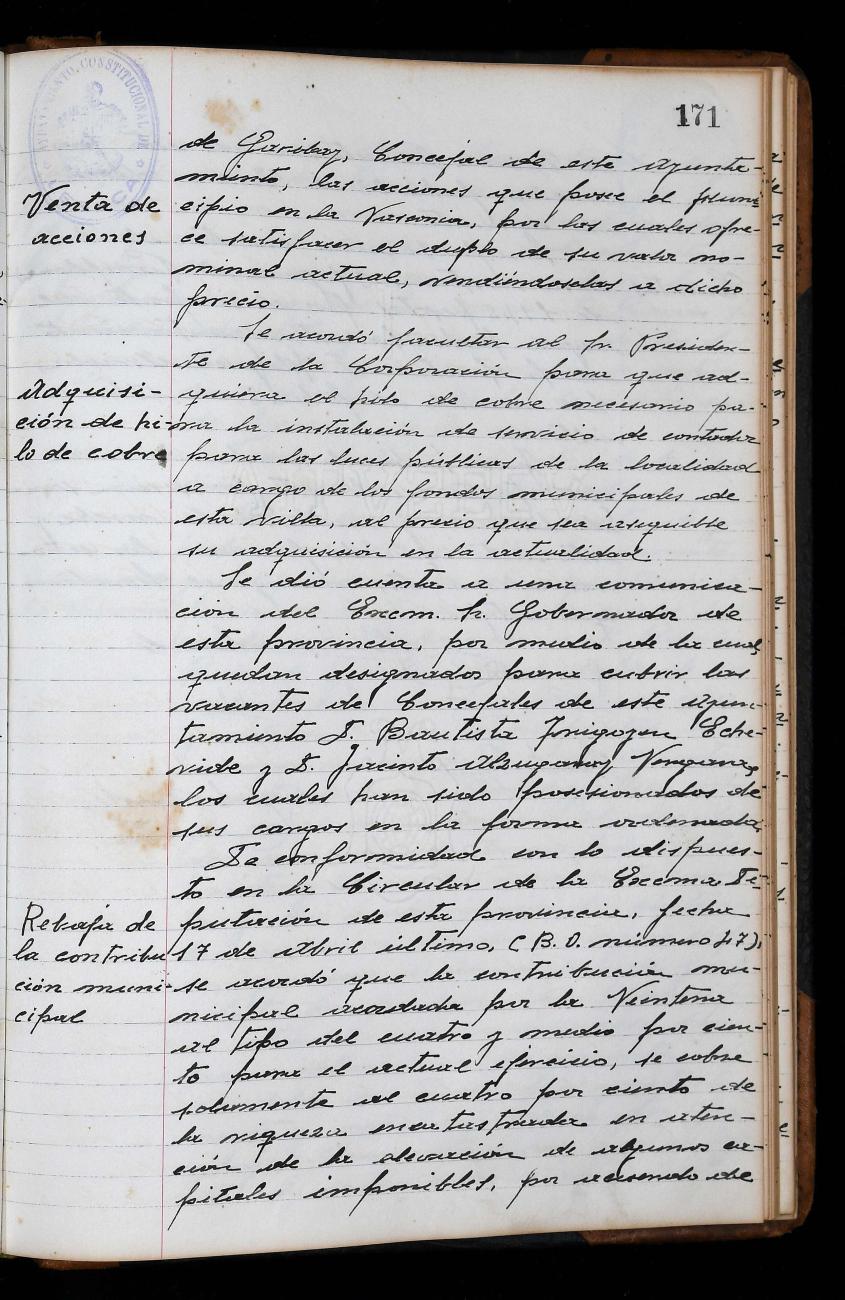 171
AYUNTAMIENTO CONSTITUCIONAL DE
Venta de
acciones
de Garibay, Concejal de este Ayunta-
miento, las acciones que posee el Muni-
cipio en la Vasconia, por las cuales ofre-
ce satisfacer el duplo de su valor no-
minal actual, vendiéndoselas a dicho
precio.
Adquisi-
ción de hi-
lo de cobre
Se acordó facultar al Sr. Presiden-
te de la Corporación para que ad-
quiera el hilo de cobre necesario pa-
ra la instalación de servicio de contador
para las luces públicas de la localidad
a cargo de los fondos municipales de
esta villa, al precio que sea asequible
su adquisición en la actualidad.
Se dió cuenta a una comunica-
ción del Excm. Sr. Gobernador de
esta provincia, por medio de la cual
quedan designados para cubrir las
vacantes de Concejales de este Ayun-
tamiento D. Bautista Irigoyen Eche-
vide y D. Jacinto Alzugaray Vergara,
los cuales han sido posesionados de
sus cargos en la forma ordenada.
Rebaja de
la contribu
ción muni-
cipal
De conformidad con lo dispues-
to en la Circular de la Excma Di-
putación de esta provincia, fecha
17 de Abril último, (B.O. número 47),
se acordó que la contribución mu-
nicipal acordada por la Veintena
al tipo del cuatro y medio por cien-
to para el actual ejercicio, se cobre
solamente al cuatro por ciento de
la riqueza encatastrada en aten-
ción de la elevación de algunos ca-
pitales imponibles, por acuerdo de